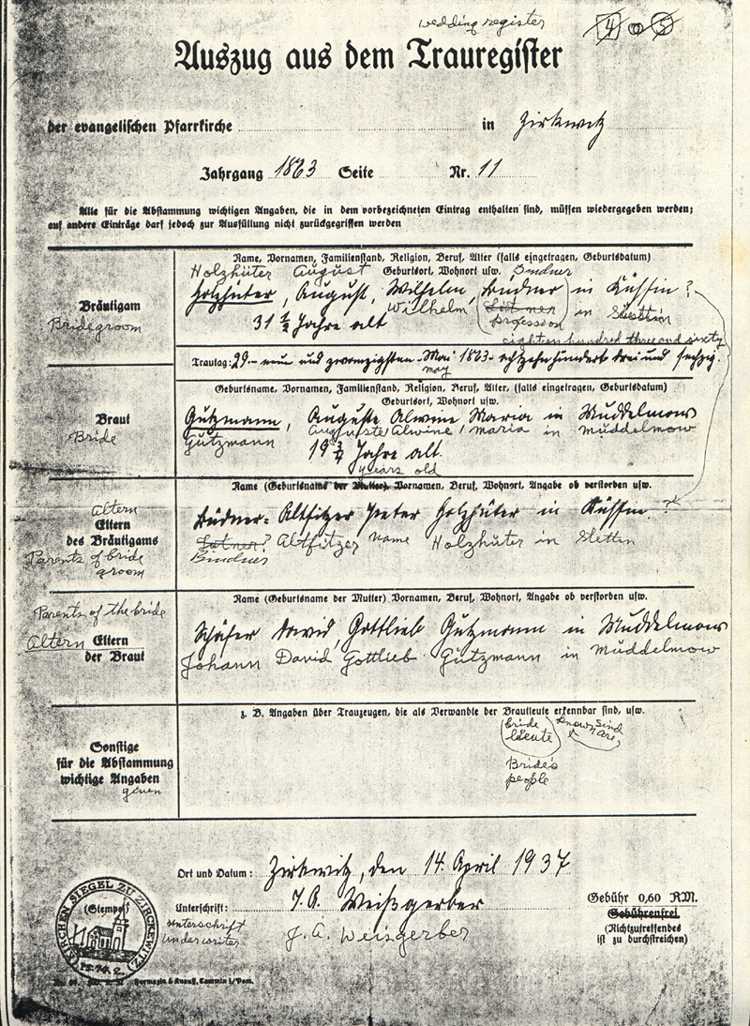 wedding register
4 o 5
Auszug aus dem Trauregister
der evangelischen Pfarrkirche in Zirkwitz
Jahrgang 1863 Seite Nr. 11
Alle für die Abstammung wichtigen Angaben, die in dem vorbezeichneten Eintrag enthalten sind, müssen wiedergegeben werden;
auf andere Einträge darf jedoch zur Ausfüllung nicht zurückgegriffen werden
Name, Vornamen, Familienstand, Religion, Beruf, Alter (falls eingetragen, Geburtsdatum)
Holzhüter August Geburtsort, Wohnort usw. Bindner
Bräutigam
Bridegroom
Holzhüter, August, Wilhelm, Büdner in Küssin ?
Wilhelm Lötner in Stettin
profession
31 1/2 Jahre alt
eighteen hundred three and sixty
Trautag: 29. neun und zwanzigsten Mai 1863 achtzehnhundert drei und sechzig.
may
Geburtsname, Vornamen, Familienstand, Religion, Beruf, Alter, (falls eingetragen, Geburtsdatum)
Geburtsort, Wohnort usw.
Braut
Bride
Gutzmann, Auguste Alwine Maria in Muddelmow
Gutzmann Auguste Alwine, maria in müddelmow
19 3/4 Jahre alt.
years old
Name (Geburtsname der Mutter) Vornamen, Beruf, Wohnort, Angabe ob verstorben usw.
Altern
Eltern
des Bräutigams
Parents of bride
groom
Büdner-Altsitzer Peter Holzhüter in Küssin. ?
Lötner? Altfitzer name Holzhüter in Stettin
Bindner
Name (Geburtsname der Mutter) Vornamen, Beruf, Wohnort, Angabe ob verstorben usw.
Parents of the bride
Altern Eltern
der Braut
Schäfer David Gottlieb Gutzmann in Muddelmow
Johann David Gottlieb Gützmann in Müddelmow
z. B. Angaben über Trauzeugen, die als Verwandte der Brautleute erkennbar sind, usw.
bride leute known sind are
Bride's
people
Sonstige
für die Abstammung
wichtige Angaben
given
Ort und Datum: Zirkwitz, den 14. April 1937.
Unterschrift: J. A. Weißgerber
unterschrift
underwriter
J. A. Weisgerber
Gebühr 0,60 RM.
Gebührenfrei
(Nichtzutreffendes
ist zu durchstreichen)
KIRCHEN SIEGEL ZU ZIRCKEWITZ
(Stempel)
Formazin & Knauff, Cammin i/Pom.